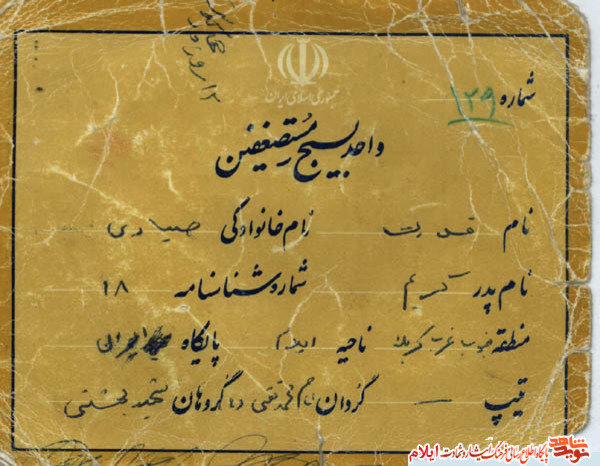 جمهوری اسلامی ایران
شماره ۱۲۹
واحد بسیج مستضعفین
نام قدرت نام خانوادگی صیادی
نام پدر کریم شماره شناسنامه ۱۸
منطقه جنوب غرب کربلا ناحیه ایلام پایگاه
تیپ — گردان امام محمد تقی گروهان شهید بهشتی
نوید شاهد پایگاه اطلاع رسانی فرهنگ ایثار و شهادت ایلام